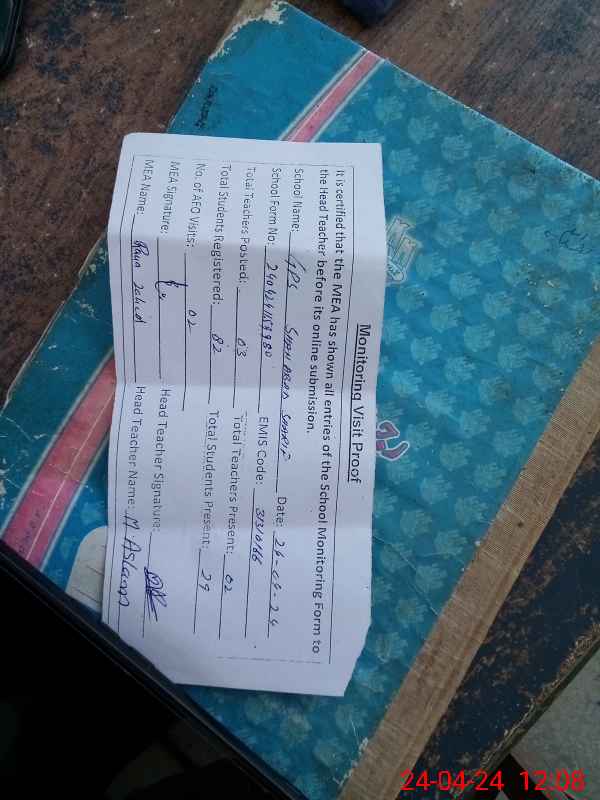 Monitoring Visit Proof
It is certified that the MEA has shown all entries of the School Monitoring Form to
the Head Teacher before its online submission.
School Name: GPS SHAH Sharif Date: 24-04-24
School Form No: EMIS Code: 31310166
Total Teachers Posted: 03 Total Teachers Present: 02
Total Students Registered: 82 Total Students Present: 79
No. of AEO Visits: 02
MEA Signature: Head Teacher Signature:
MEA Name: Zahid Head Teacher Name: M. Aslam
24-04-24 12:08